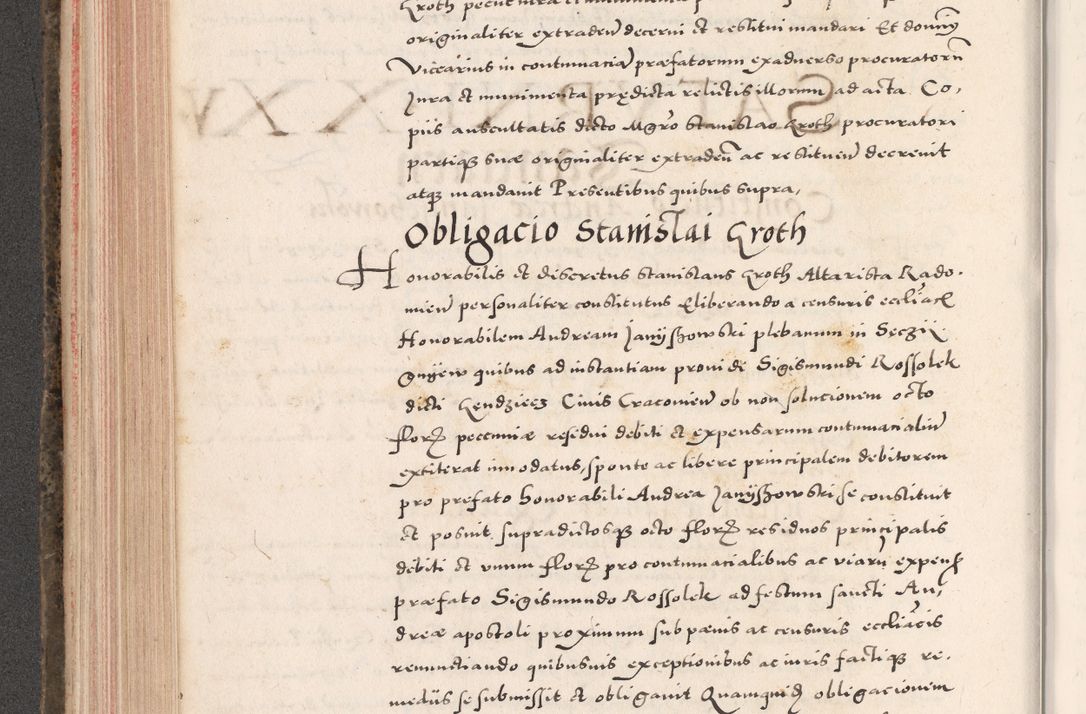 originaliter extradend decerni et restitui mandari Et domin9
Vicearius in contumacia præfatorum exadverso procuratorū
Jura et munimenta prędicta relictis illorum ad acta Co,
piis auscultatis dicto Mgro Stanislao Groth procuratori
partique suæ originaliter extradeñ ac restituend decrevit
atque mandavit Presentibus quibus supra,
Obligacio Stanislai Groth
Honorabilis et discretus Stanislaus Groth Altarista Rado.
mien personaliter constitutus Eliberando a censuris eccliacis
Honorabilem Andream Janyszowski plebanum in Seczij
gnyew quibus ad instantiam providi Sigismundi Rossolek
dicti Gendziecz Civis Cracovien ob non solucionem octo
flor pecuniæ residui debiti et expensarum contumacialium
extiterat innodatus, sponte ac libere principalem debitorem
pro prefato honorabili Andrea Janyszowski se constituit
et posuit supradictosque octo flor residuos principalis
debiti et unum flor pro contumacialibus ac viarū expens
præfato Sigismundo Rossolek ad festum sancti An,
dreæ apostoli proximum sub pænis ac censuris eccliacis
renunctiando quibusvis exceptionibus ac iuris factique re.
mediis se submissit et obligavit Quamquid obligacionem